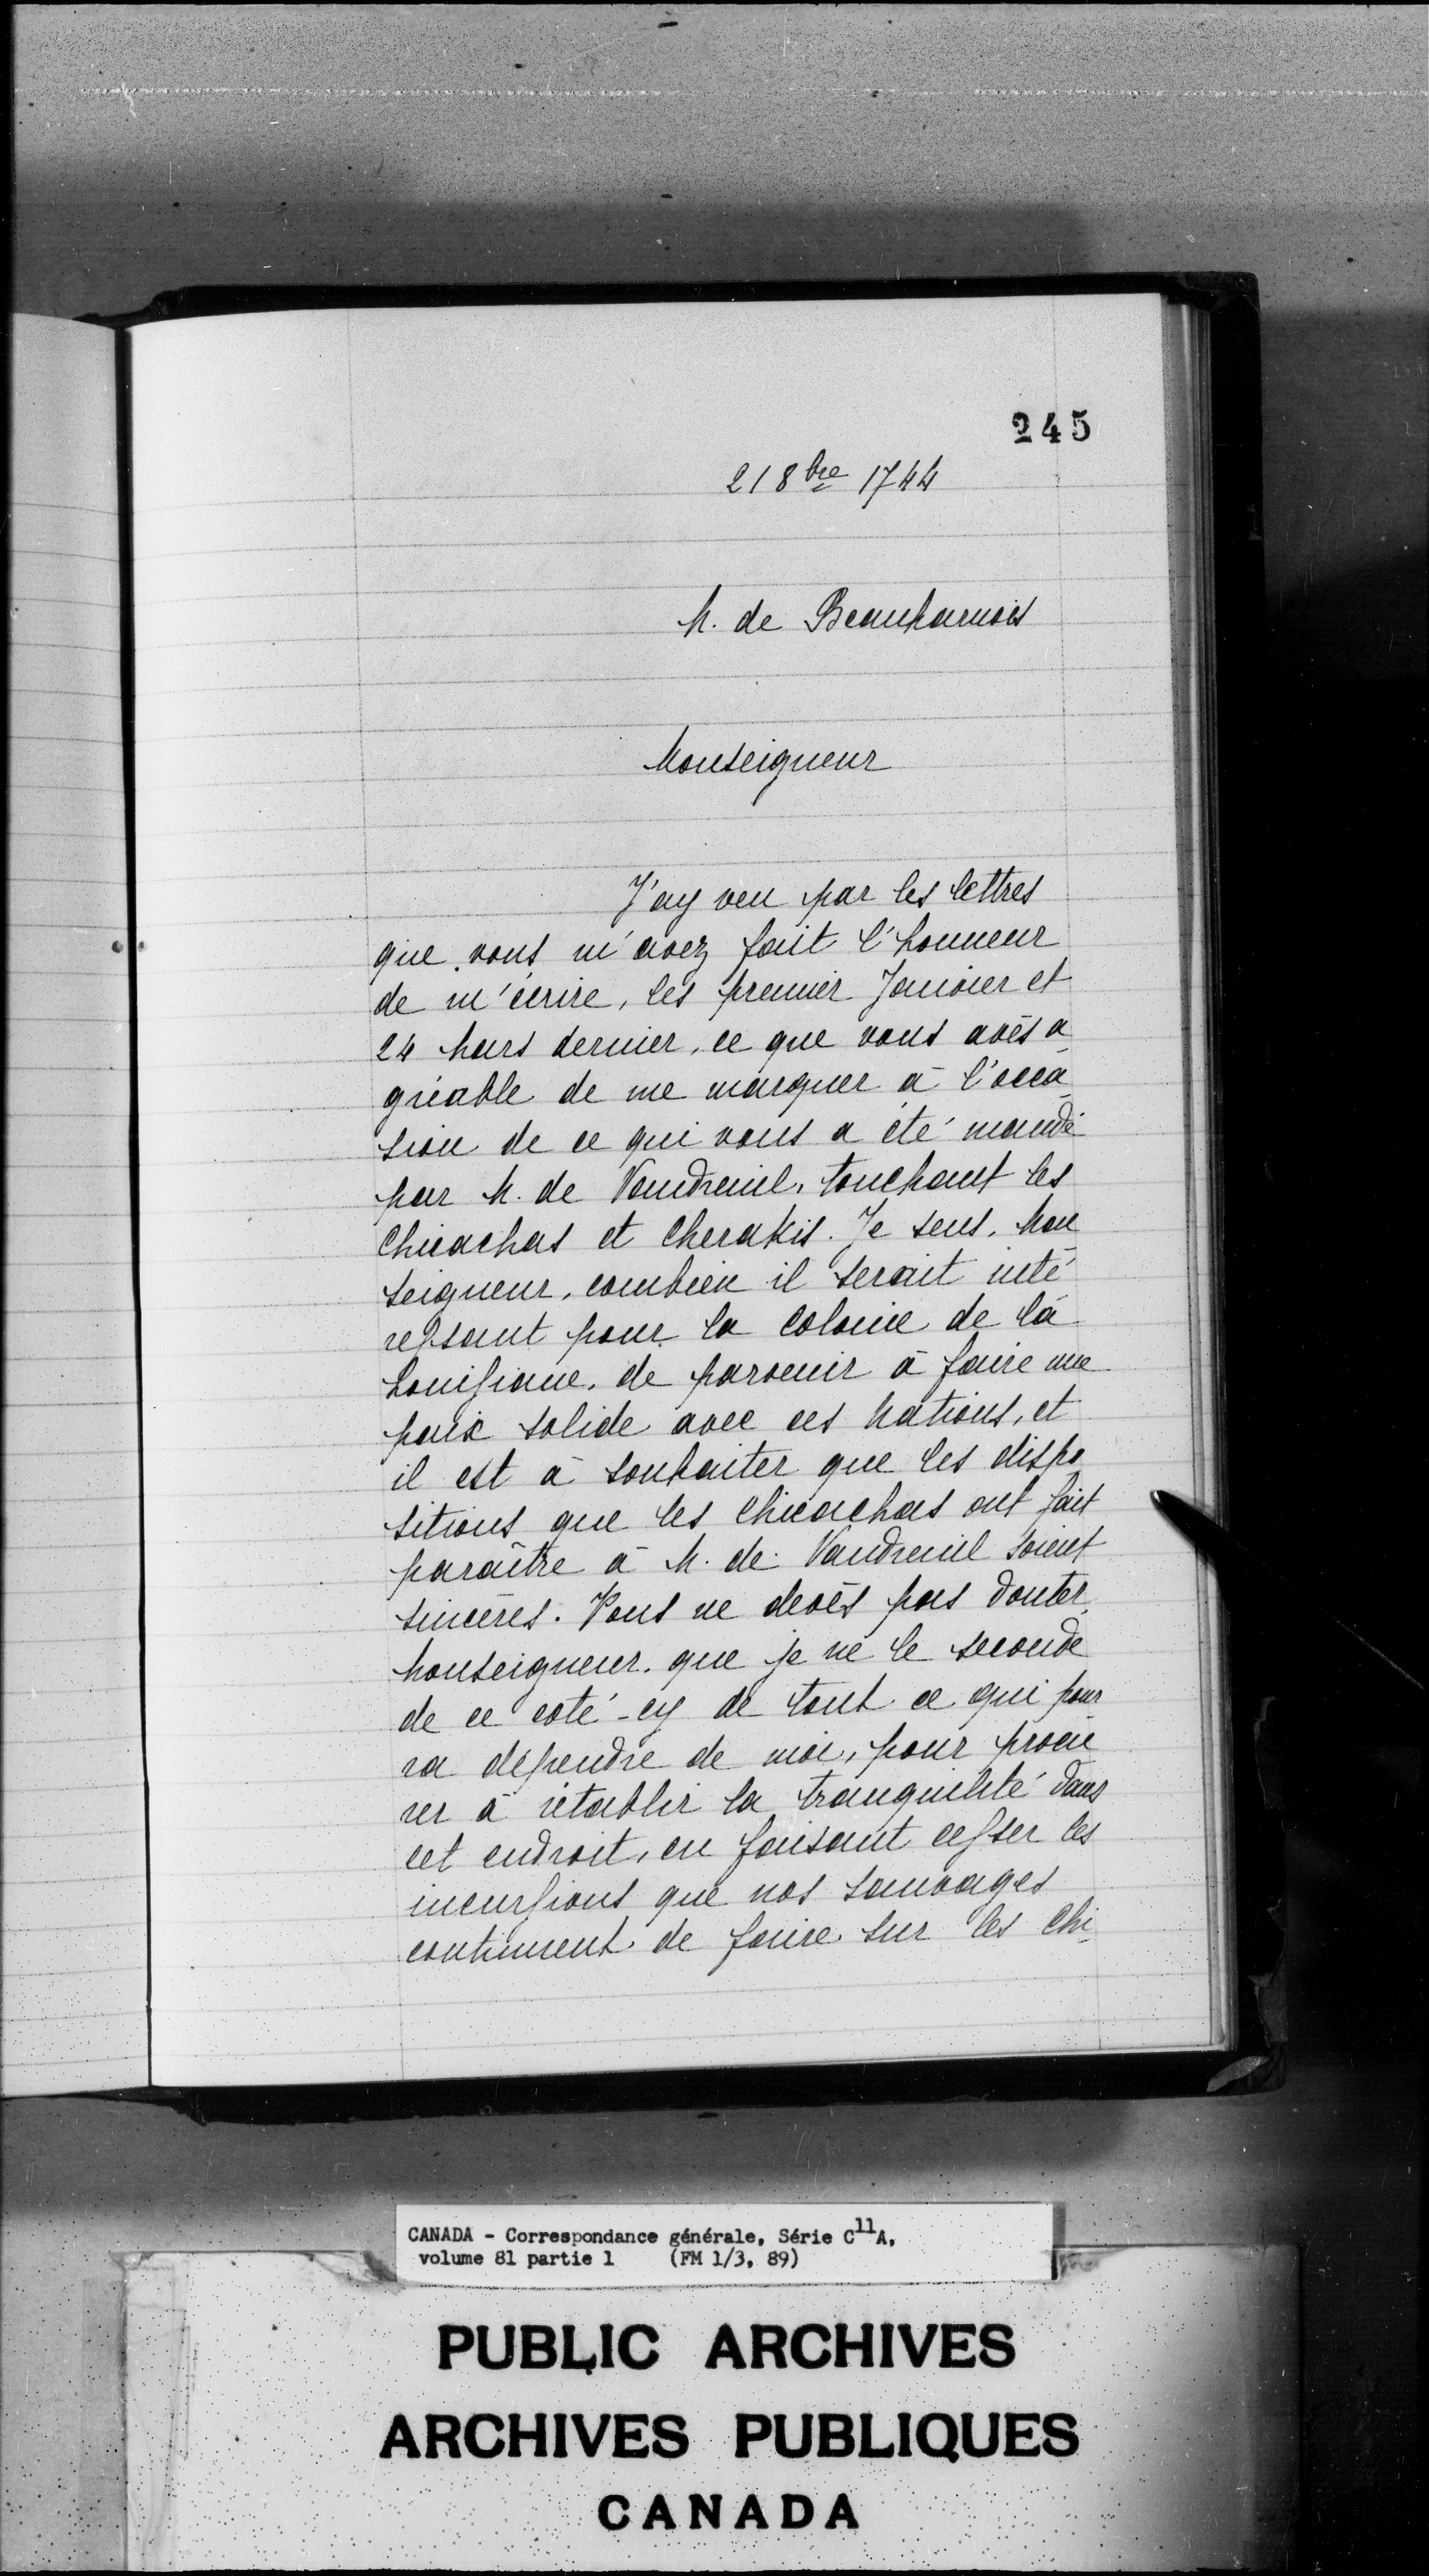 245
21 8bre 1744
M. de Beauharnois
Monseigneur
J'ay veu par les lettres
que vous m'avez fait l'honneur
de m'écrire, les premier Janvier et
24 Mars dernier, ce que vous avés a
gréable de me marquer à l'occa
sion de ce qui vous a été mandé
par M. de Vaudreuil, touchant les
Chicachas et Cherakis. Je sens, Mon
seigneur, combien il serait inté
ressant pour la Colonie de la
Louisiane, de parvenir à faire une
paix solide avec ces Nations, et
il est à souhaiter que les dispo
sitions que les Chicachas ont fait
paraître à M. de Vaudreuil soient
sincères. Vous ne devés pas douter,
Monseigneur, que je ne le seconde
de ce coté-cy de tout ce qui pour
ra dépendre de moi, pour procu
rer à rétablir la tranquilité dans
cet endroit, en faisant cesser les
incursions que nos sauvages
continuent de faire sur les Chi
CANADA - Correspondance générale, Série C11A,
volume 81 partie 1 (FM 1/3, 89)
PUBLIC ARCHIVES
ARCHIVES PUBLIQUES
CANADA